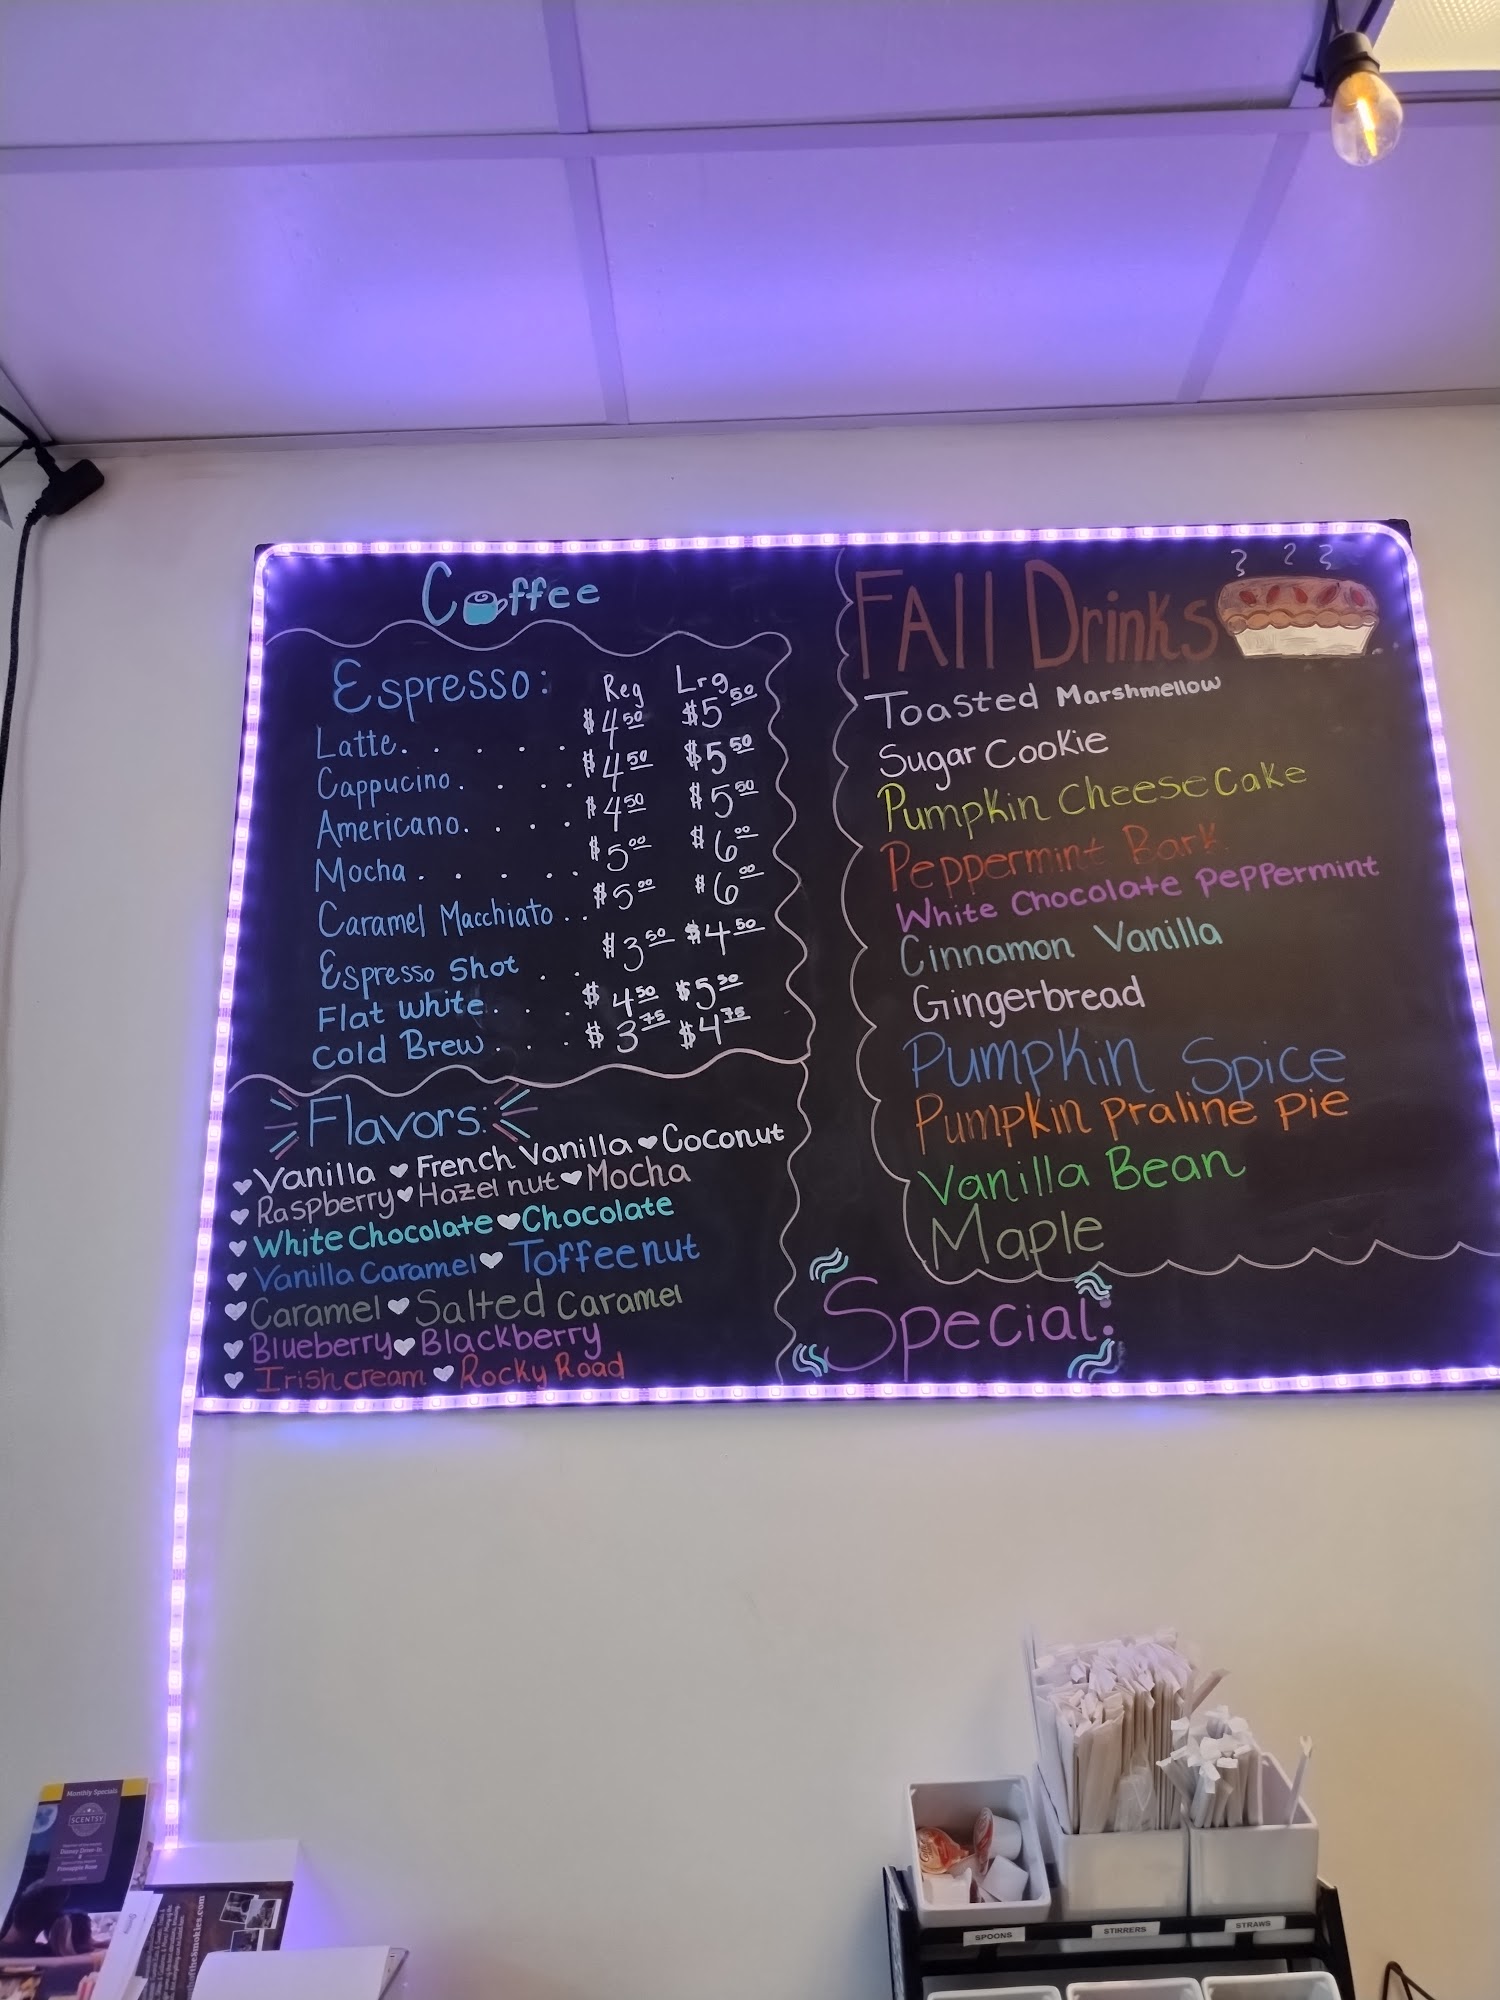 Coffee
Espresso: Reg Lrg
Latte. . . . . . $4.50 $5.50
Cappucino. . . . . $4.50 $5.50
Americano. . . . $4.50 $5.50
Mocha . . . . . $5.00 $6.00
Caramel Macchiato . . $5.00 $6.00
Espresso Shot . . $3.50 $4.50
Flat white. . . . $4.50 $5.50
Cold Brew. . . . $3.75 $4.75
Flavors:
Vanilla ♥ French Vanilla ♥ Coconut
♥ Raspberry ♥ Hazelnut ♥ Mocha
♥ White Chocolate ♥ Chocolate
♥ Vanilla Caramel ♥ Toffeenut
♥ Caramel ♥ Salted Caramel
♥ Blueberry ♥ Blackberry
♥ Irish cream ♥ Rocky Road
FAll Drinks
Toasted Marshmellow
Sugar Cookie
Pumpkin CheeseCake
Peppermint Bark
White Chocolate Peppermint
Cinnamon Vanilla
Gingerbread
Pumpkin Spice
Pumpkin Praline Pie
Vanilla Bean
Maple
Special:
Monthly Specials
SCENTSY
Disney Drive-In
Pineapple Rose
ofthesmokies.com
SPOONS
STIRRERS
STRAWS